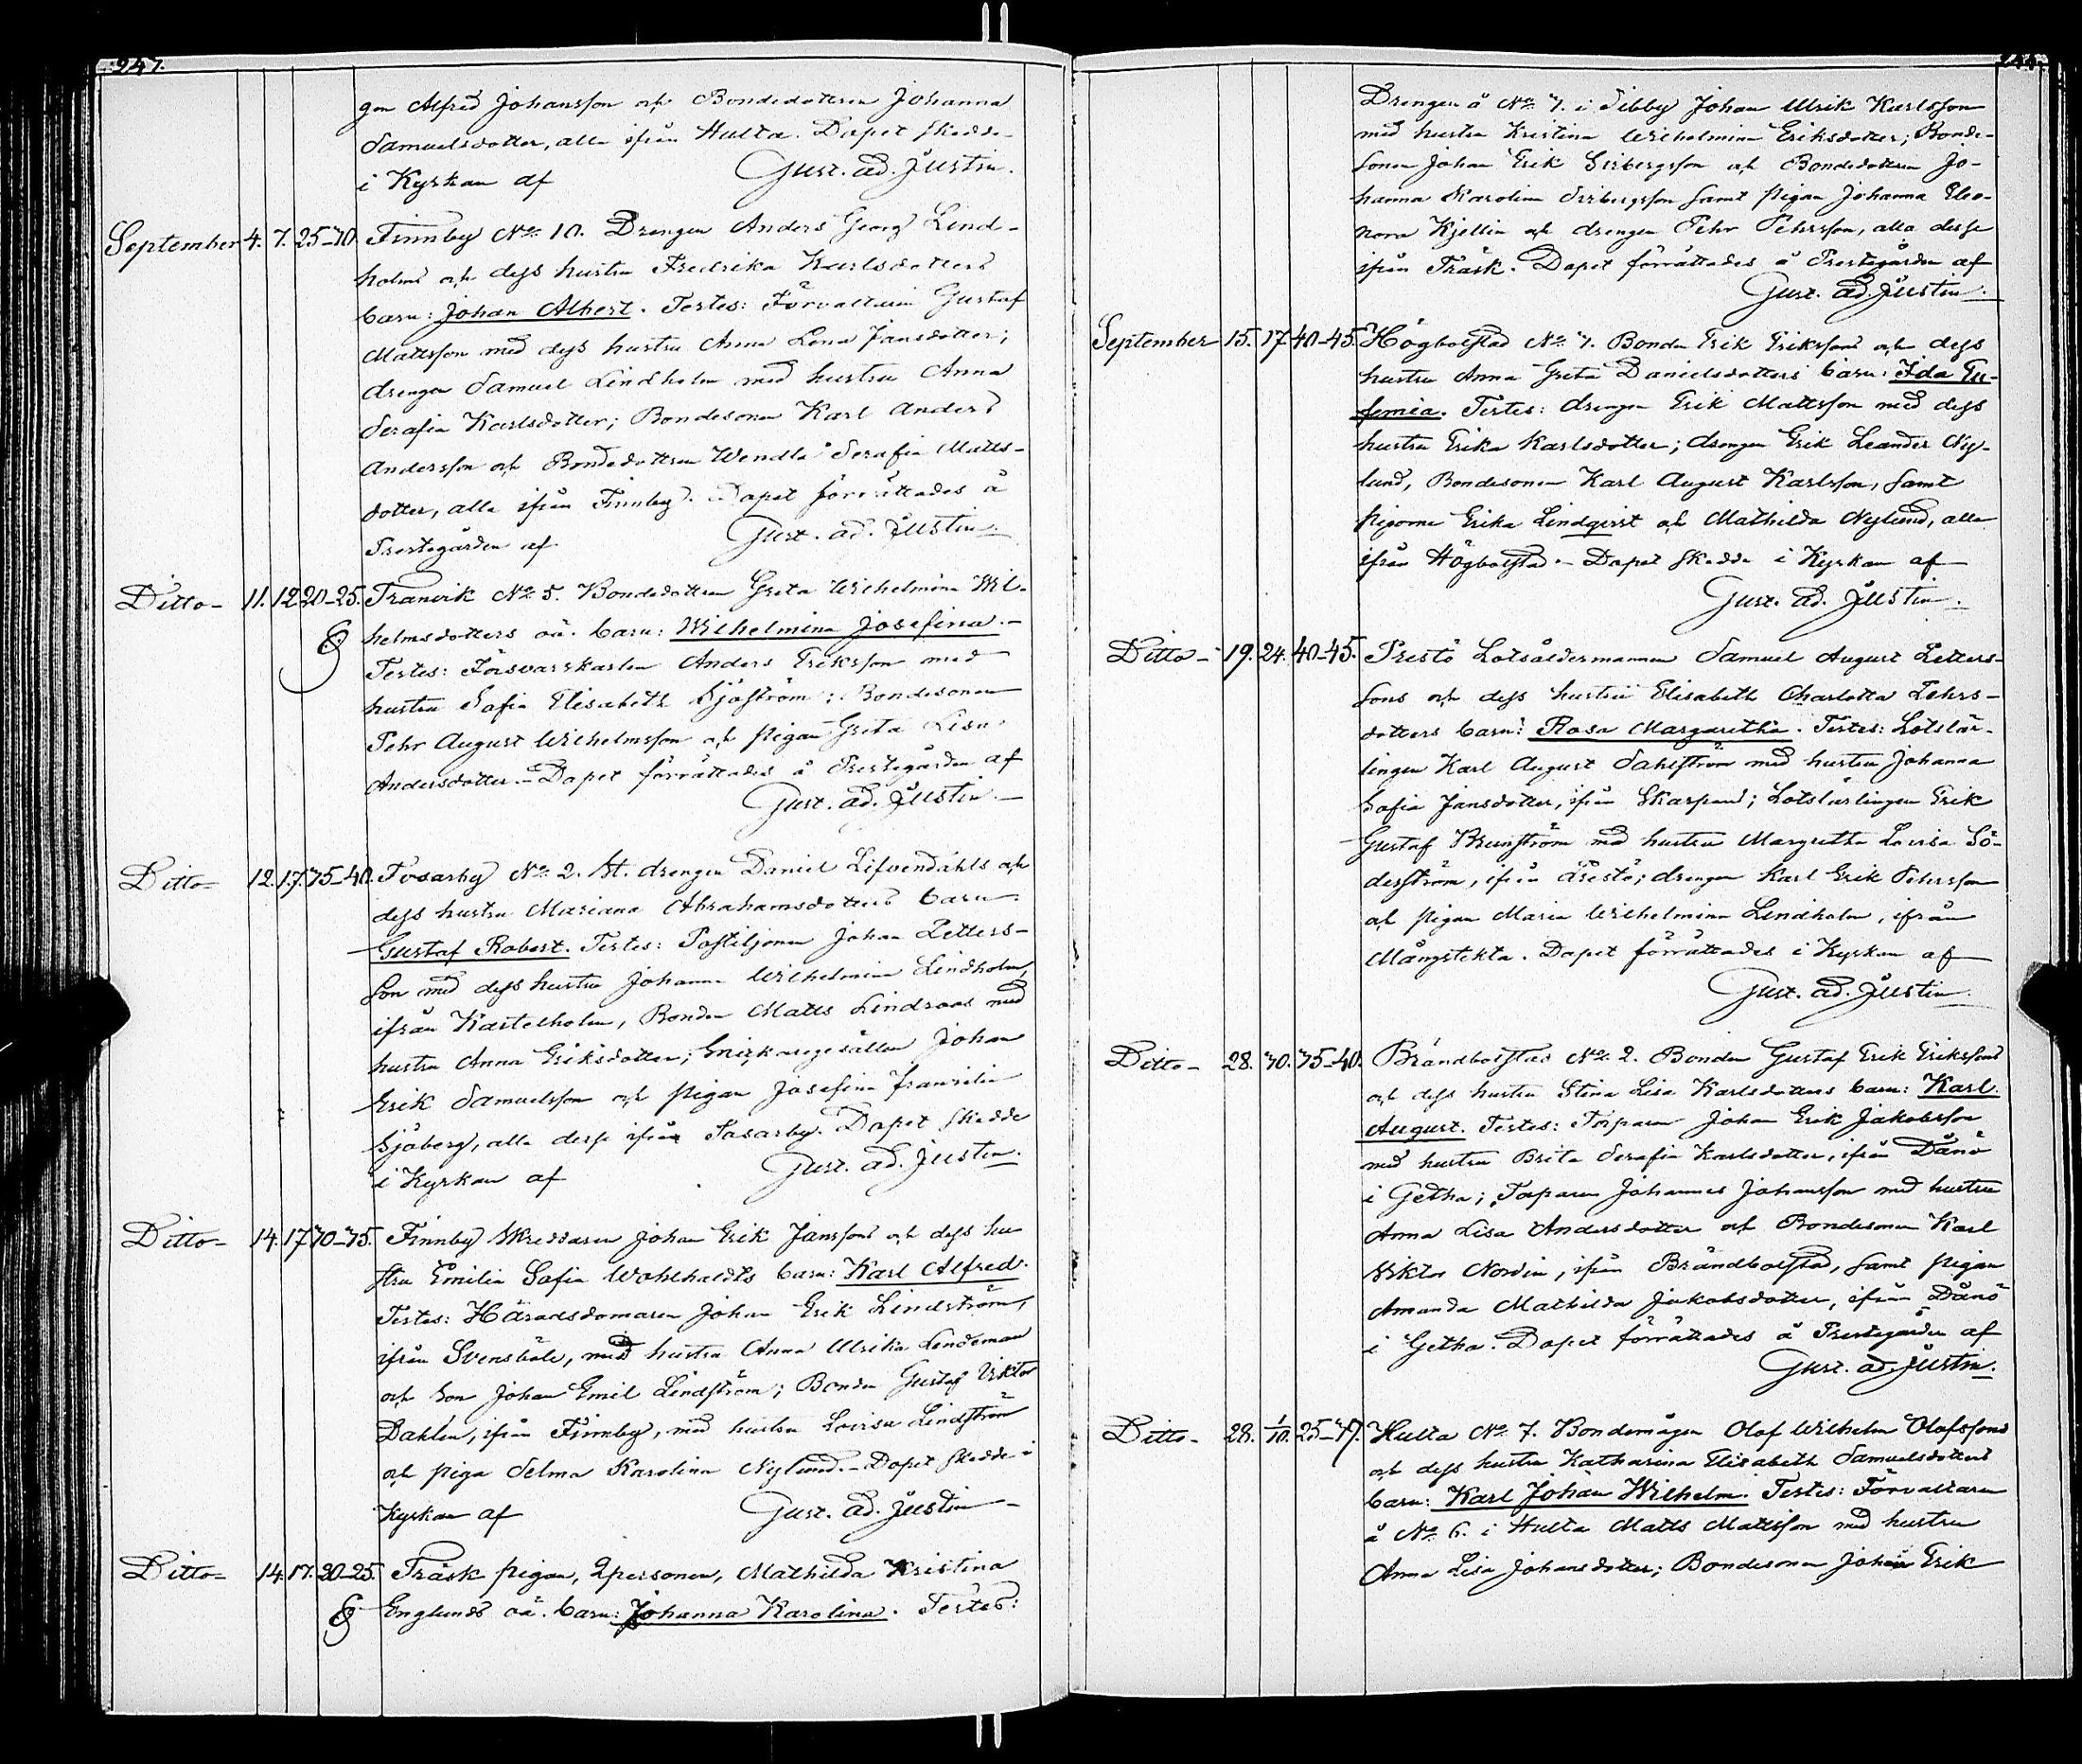 247.
gon Alfred Johansson och Bondedottren Johanna
Samuelsdotter, alla ifrån Hulta. Dopet skedde
i Kyrkan af Gust. Ad. Justin.
September 4. 7. 25-30. Finnby No 10. Drengen Anders Georg Lind-
holms och dess hustru Fredrika Karlsdotters
barn: Johan Albert. Testes: Förvaltaren Gustaf
Mattsson med dess hustru Anna Lena Jansdotter;
drengen Samuel Lindholm med hustru Anna
Serafia Karlsdotter; Bondesonen Karl Anders
Andersson och Bondedottren Wendla Serafia Matts-
dotter, alla ifrån Finnby. Dopet förrättades å
Prestegården af Gust. Ad. Justin.
Ditto 11. 12. 20-25. Tranvik No 5. Bondedottren Greta Wilhelmina Wil-
helmsdotters oä. barn: Wilhelmina Josefina.
Testes: Försvarskarlen Anders Eriksson med
hustru Sofia Elisabeth Sjöström; Bondesonen
Pehr August Wilhelmsson och pigan Greta Lisa
Andersdotter. Dopet förrättades å Prestegården af
Gust. Ad. Justin.
Ditto 12. 17. 35-40. Tosarby No 2. St. drengen Daniel Lifvendahls och
dess hustru Mariana Abrahamsdotters barn:
Gustaf Robert. Testes: Postiljonen Johan Petters-
son med dess hustru Johanna Wilhelmina Lindholm,
ifrån Kastelholm, Bonden Matts Lindroos med
hustru Anna Eriksdotter; Snickaregesällen Johan
Erik Samuelsson och pigan Josefina Fransilia
Sjöberg, alla desse ifrån Tosarby. Dopet skedde
i Kyrkan af Gust. Ad. Justin.
Ditto 14. 17. 30-35. Finnby Skreddaren Johan Erik Janssons och dess hu-
stru Emilia Sofia Wohlhaldts barn: Karl Alfred.
Testes: Häradsdomaren Johan Erik Lindström,
ifrån Svensböle, med hustru Anna Ulrika Lindeman
och Son Johan Emil Lindström; Bonden Gustaf Viktor
Dahlén, ifrån Finnby, med hustru Lovisa Lindström
och piga Selma Karolina Nylund. Dopet skedde i
Kyrkan af Gust. Ad. Justin
Ditto 14. 17. 20-25. Träsk pigan, 2 personen, Mathilda Kristina
Englunds oä. barn: Johanna Karolina. Testes:
Drengen å No 3. i Sibby Johan Ulrik Karlsson
med hustru Kristina Wilhelmina Eriksdotter; Bonde-
sonen Johan Erik Sirbergsson och Bondedottren Jo-
hanna Karolina Sirbergsson samt pigan Johanna Eleo-
nora Kjellin och drengen Pehr Pehrsson, alla desse
ifrån Träsk. Dopet förrättades å Prestegården af
Gust. Ad. Justin.
September 15. 17. 40-45. Högbolstad No 3. Bonden Erik Erikssons och dess
hustru Anna Greta Danielsdotters barn: Ida Eu-
femia. Testes: drengen Erik Mattsson med dess
hustru Erika Karlsdotter; drengen Erik Leander Ny-
lund, Bondesonen Karl August Karlsson, samt
pigorna Erika Lindqvist och Mathilda Nylund, alla
ifrån Högbolstad. Dopet skedde i Kyrkan af
Gust. Ad. Justin.
Ditto 19. 24. 40-45. Prestö Lotsåldermannen Samuel August Petters-
sons och dess hustru Elisabeth Charlotta Pehrs-
dotters barn: Rosa Margaretha. Testes: Lotslär-
lingen Karl August Dahlström med hustru Johanna
Sofia Jansdotter, ifrån Skarpans; Lotslärlingen Erik
Gustaf Brunström med hustru Margretha Lovisa Sö-
derström, ifrån drengen Karl Erik Pehrsson
och pigan Maria Wilhelmina Lindholm, ifrån
Mångstekta. Dopet förrättades i Kyrkan af
Gust. Ad. Justin.
Ditto 28. 30. 35-40. Brändbolstad No 2. Bonden Gustaf Erik Erikssons
och dess hustru Stina Lisa Karlsdotters barn: Karl
August. Testes: Torparen Johan Erik Jakobsson
med hustru Brita Serafia Karlsdotter, ifrån Dånö
i Getha; Torparen Johannes Johansson med hustru
Anna Lisa Andersdotter och Bondesonen Karl
Viktor Nordin, ifrån Brändbolstad, samt pigan
Amanda Mathilda Jakobsdotter, ifrån Dånö
i Getha. Dopet förrättades å Prestegården af
Gust. Ad. Justin.
Ditto 28. 1/10. 25-30. Hulta No 7. Bondemågen Olof Wilhelm Olofssons
och dess hustru Katharina Elisabeth Samuelsdotters
barn: Karl Johan Wilhelm. Testes: Förvaltaren
å No 6. i Hulta Matts Mattsson med hustru
Anna Lisa Johansdotter; Bondesonen Johan Erik